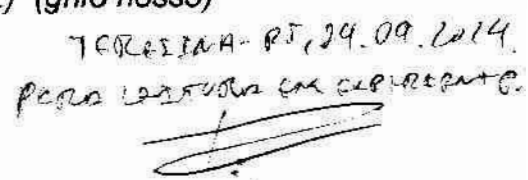 (grifo nosso)
TERESINA-PI, 29.09.2014.
PARA LEITURA EM EXPEDIENTE.